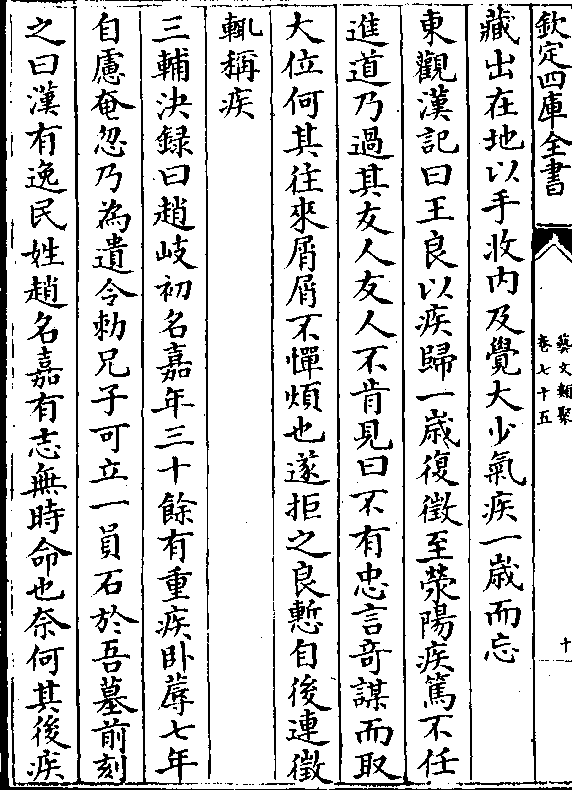 欽定四庫全書
藝文類聚
卷七十五
十
藏出在地以手收内及覺大少氣疾一歲而忘
東觀漢記曰王良以疾歸一歲復徵至滎陽疾篤不任
進道乃過其友人友人不肯見曰不有忠言竒謀而取
大位何其往來屑屑不憚煩也遂拒之良慙自後連徵
輒稱疾
三輔決録曰趙岐初名嘉年三十餘有重疾卧蓐七年
自慮奄忽乃為遺令勑兄子可立一員石於吾墓前刻
之曰漢有逸民姓趙名嘉有志無時命也奈何其後疾